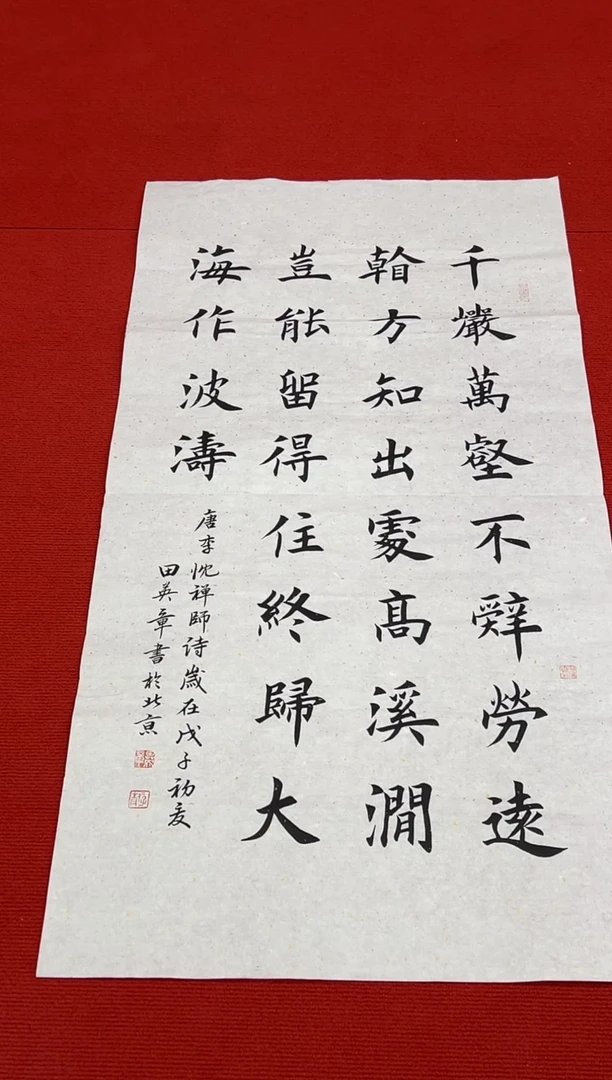 千巖萬壑不辭勞遠
看方知出處高溪澗
豈能留得住終歸大
海作波濤
唐李忱禪師詩歲在戊子初夏
田英章書於北京